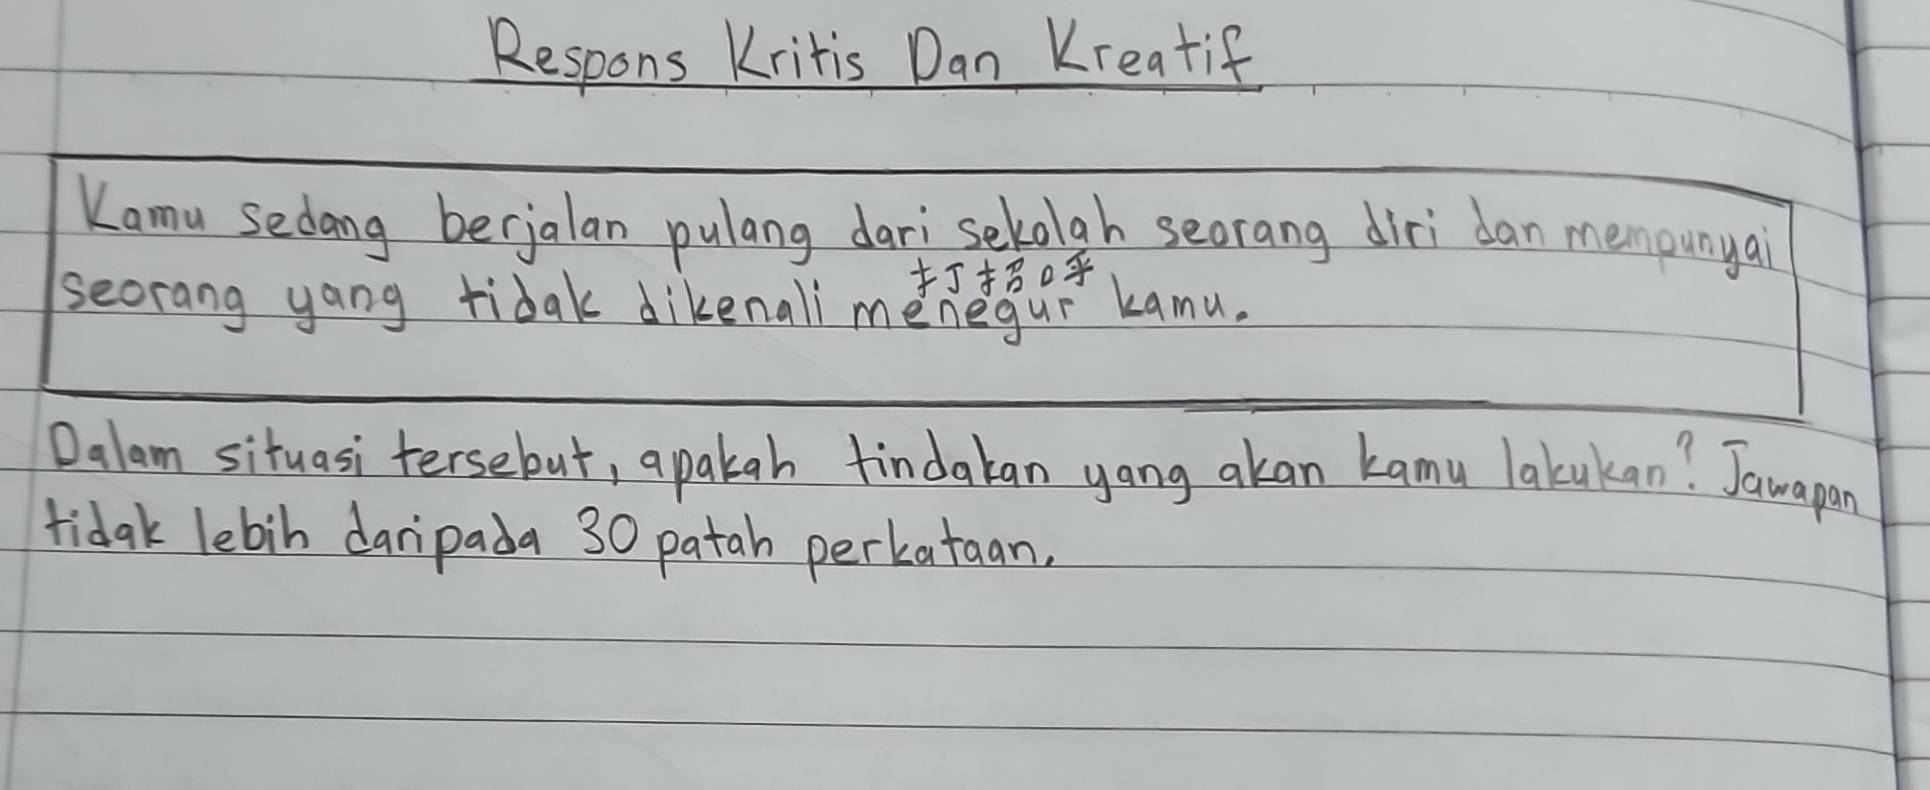 Respons Kritis Dan Kreatif
Kamu sedang berjalan pulang dari sekolah seorang diri dan mempunyai
打招呼
seorang yang tidak dikenali menegur kamu.
Dalam situasi tersebut, apakah tindakan yang akan kamu lakukan? Jawapan
tidak lebih daripada 30 patah perkataan.